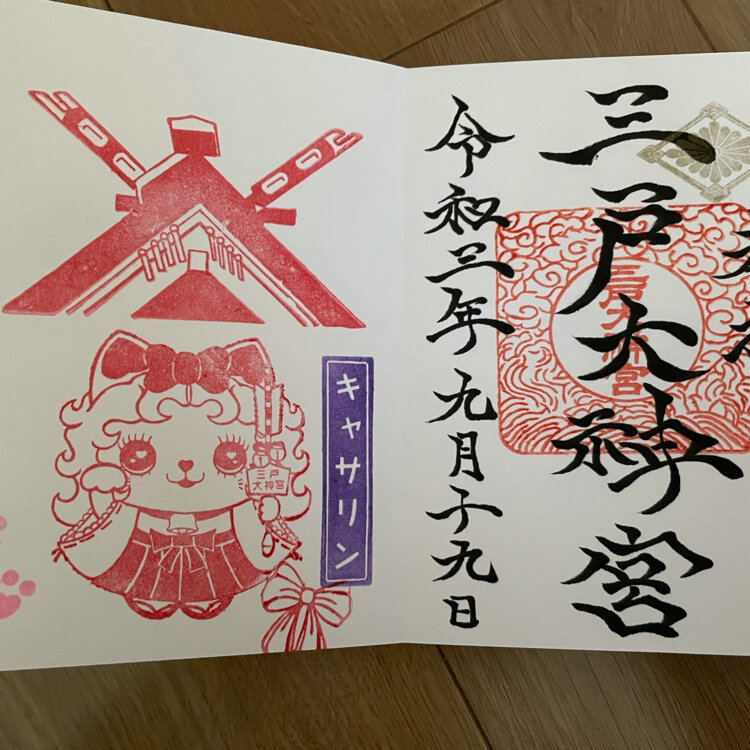 三戸大神宮
令和三年九月十九日
キャサリン
三戸
大神宮